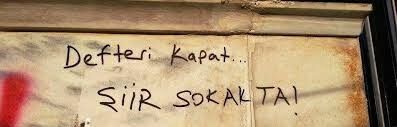 Defteri Kapat...
ŞİİR SOKAKTA!